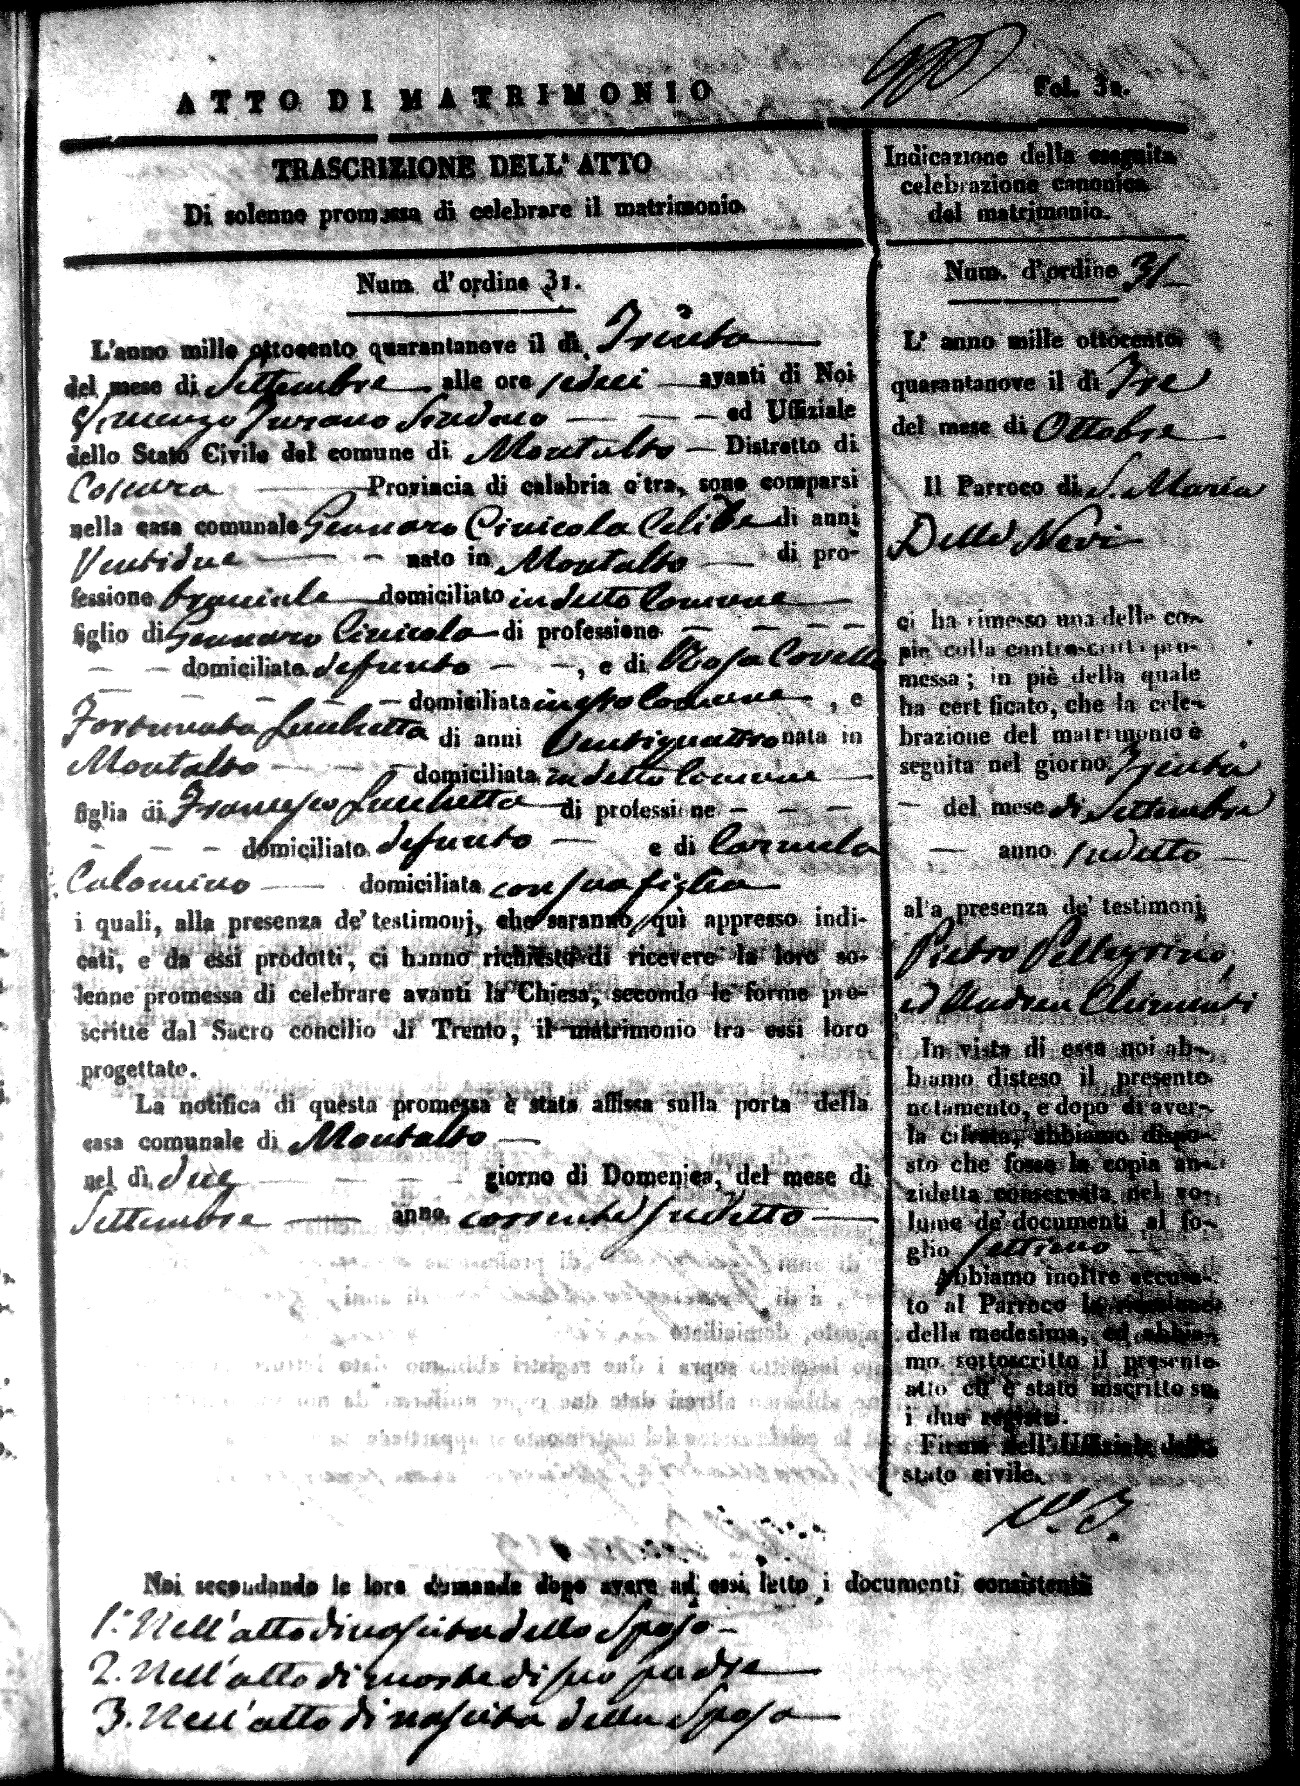 ATTO DI MATRIMONIO
Fol. 31.
TRASCRIZIONE DELL' ATTO
Di solenne promessa di celebrare il matrimonio.
Num. d'ordine 31.
L'anno mille ottocento quarantanove il dì Trenta
del mese di Settembre alle ore sedeci avanti di Noi
Turano Sindaco ed Uffiziale
dello Stato Civile del comune di Montalto Distretto di
Cosenza Provincia di calabria citra, sono comparsi
nella casa comunale Gennaro Cinicola Celibe di anni
Ventidue nato in Montalto di pro-
fessione bracciale domiciliato in detto Comune
figlio di Gennaro Cinicola di professione
domiciliato defunto , e di Rosa Covello
domiciliata in esso Comune , e
Fortunata Lucchetta di anni Ventiquattro nata in
Montalto domiciliata in detto Comune
figlia di Francesco Lucchetta di professione
domiciliato defunto e di Carmela
Colomino domiciliata con sua figlia
i quali, alla presenza de' testimonj, che saranno quì appresso indi-
cati, e da essi prodotti, ci hanno richiesto di ricevere la loro so-
lenne promessa di celebrare avanti la Chiesa, secondo le forme pre-
scritte dal Sacro concilio di Trento, il matrimonio tra essi loro
progettato.
La notifica di questa promessa è stata affissa sulla porta della
casa comunale di Montalto
nel dì due giorno di Domenica, del mese di
Settembre anno corrente sudetto
Indicazione della eseguita
celebrazione canonica
del matrimonio.
Num. d'ordine 31
L' anno mille ottocento
quarantanove il dì Tre
del mese di Ottobre
Il Parroco di S. Maria
Della Nevi
ci ha rimesso una delle co-
pie colla controscritta pro-
messa; in piè della quale
ha certificato, che la cele-
brazione del matrimonio è
seguita nel giorno Trenta
del mese di Settembre
anno sudetto
alla presenza de' testimonj
Pietro Pellegrino,
ed Andrea Chimenti
In vista di essa noi ab-
biamo disteso il presente
notamento, e dopo di aver-
la cifrata, abbiamo dispo-
sto che fosse la copia an-
zidetta conservata nel vo-
lume de' documenti al fo-
glio settimo
Abbiamo inoltre accusa-
to al Parroco la ricezione
della medesima, ed abbia-
mo sottoscritto il presente
atto ch' è stato inscritto su
i due registri.
Firma dell' Uffiziale dello
stato civile.
Noi secondando le loro domande dopo avere ad essi letto i documenti consistenti
1.° Nell'atto di nascita dello Sposo
2. Nell'atto di morte di suo padre
3. Nell'atto di nascita della Sposa